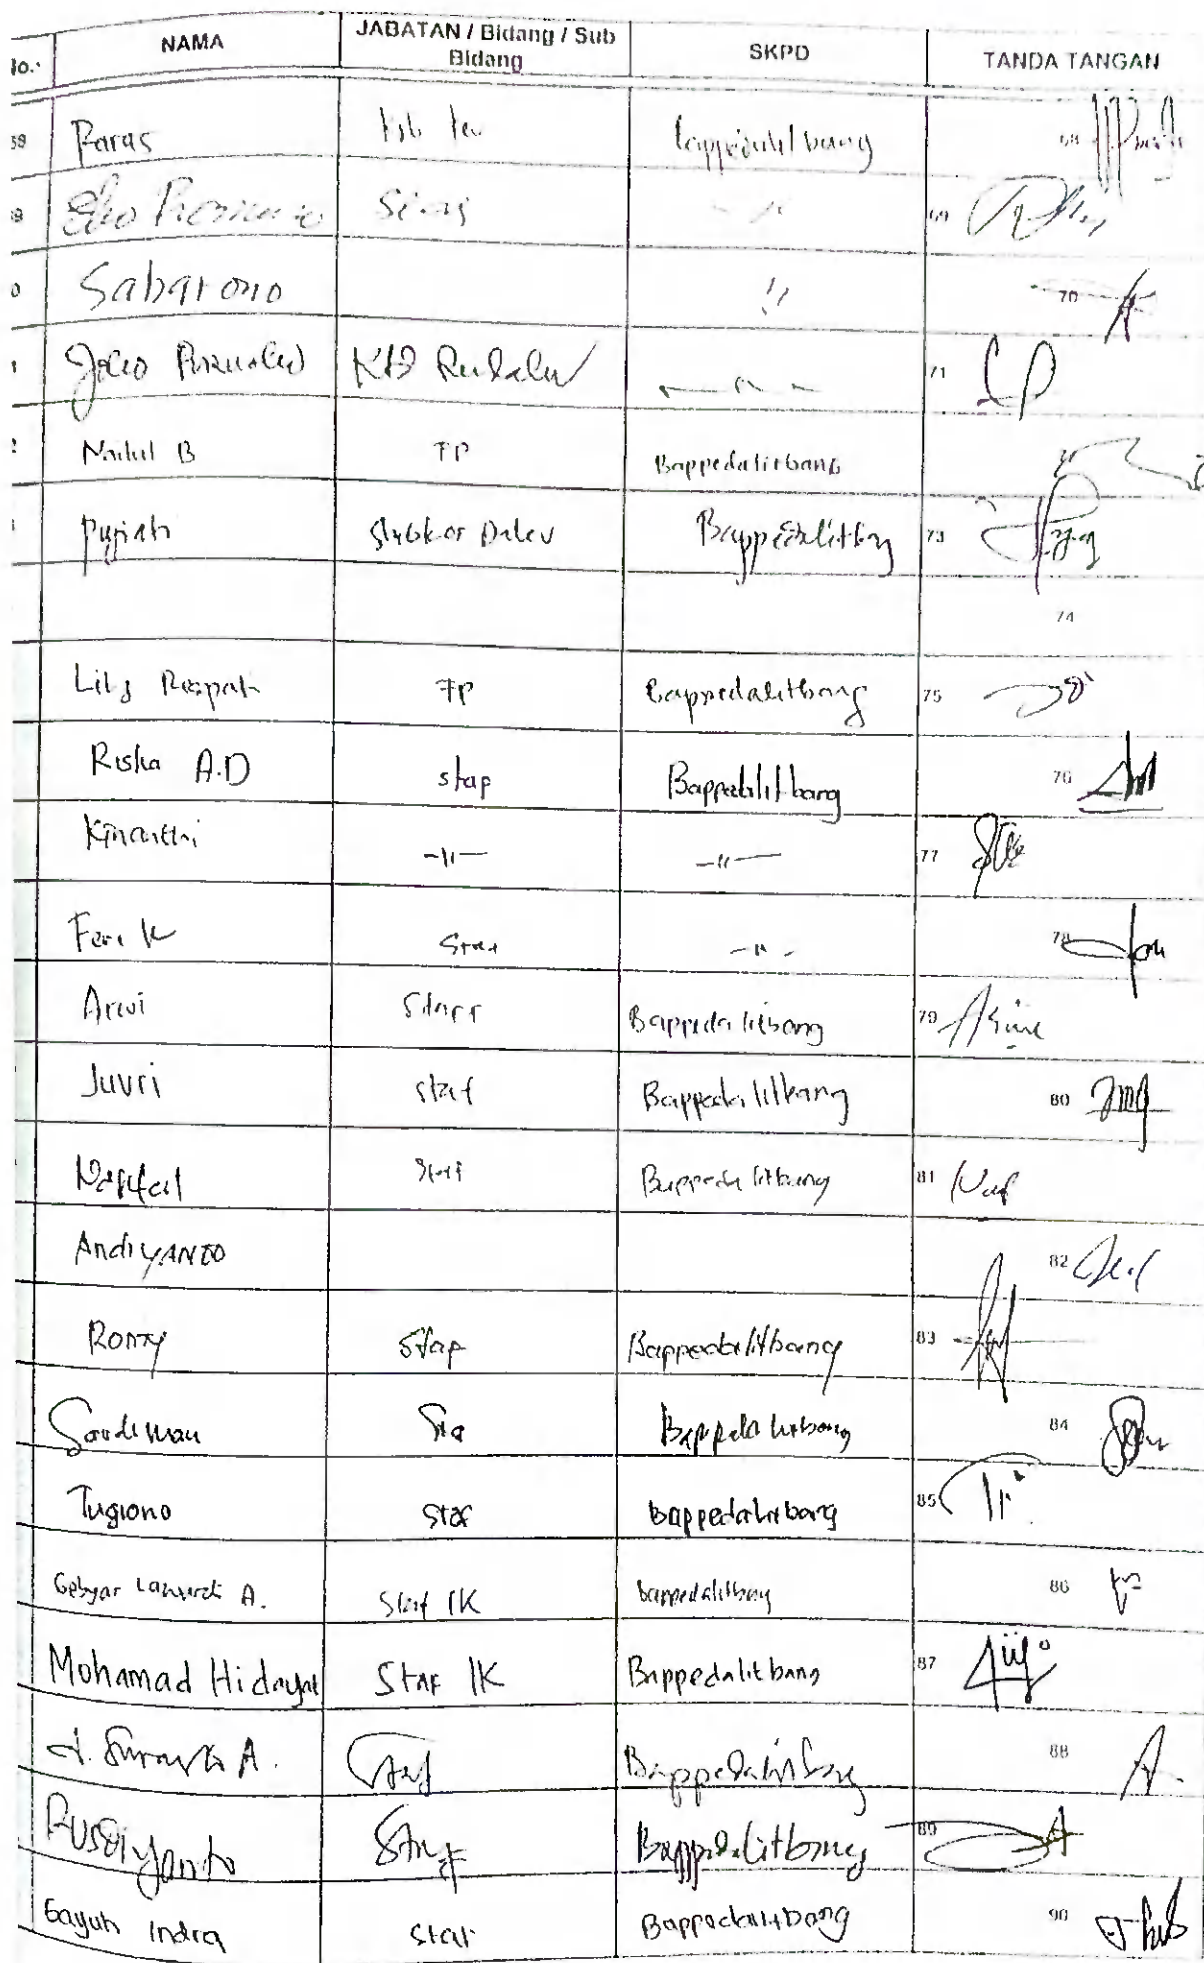 No. NAMA JABATAN / Bidang / Sub Bidang SKPD TANDA TANGAN
Paras bappedalitbang 68
Eko Si 69
Sabarono " 70
Joko KB — " — 71
B FP Bappedalitbang
Pujiati Subkor Dalev Bappedalitbang 73
74
FP Bappedalitbang 75
Riska A.D stap Bappedalitbang 76
Kinanthi —"— —"— 77
Feri K —"— 78
Arwi Staff Bappedalitbang 79
Juvri staf Bappedalitbang 80
Naufal Staf Bappedalitbang 81
AndiYANTO 82
Ronny Stap Bappedalitbang 83
Sardiman Bappedalitbang 84
Tugiono Staf bappedalitbang 85
Gebyar A. Staf IK bappedalitbang 86
Mohamad Hidayat Staf IK Bappedalitbang 87
A. Staf Bappedalitbang 88
Rusdiyanto Staf Bappedalitbang 89
Gayuh Indra Staf Bappedalitbang 90